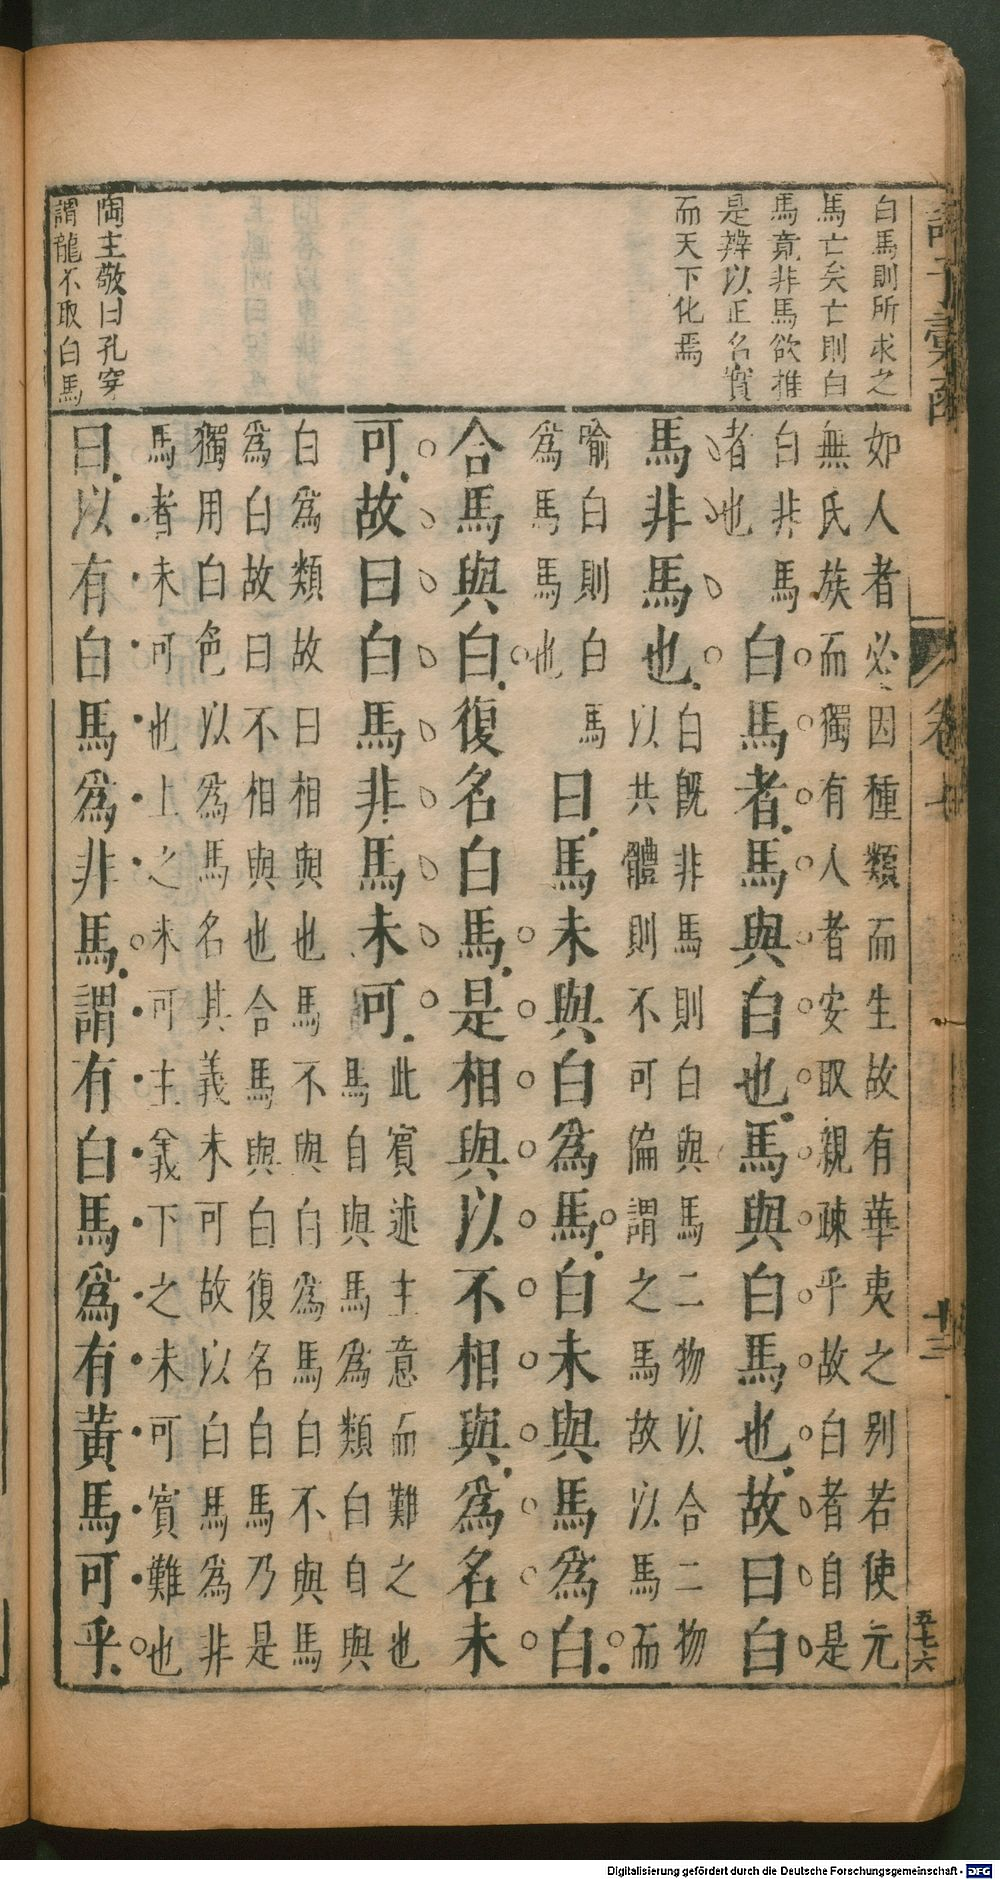 諸子彙函
卷
十三
五七六
白馬則所求之
馬亡矣亡則白
馬竟非馬欲推
是辨以正名實
而天下化焉
陶主敬曰孔穿
謂龍不取白馬
如人者必因種類而生故有華夷之别若使元
無氏族而獨有人者安取親疎乎故白者自是
白非馬
者也
白馬者馬與白也馬與白馬也故曰白
馬非馬也
白旣非馬則白與馬二物以合二物
以共體則不可偏謂之馬故以馬而
喻白則白馬
爲馬馬也
曰馬未與白爲馬白未與馬爲白
合馬與白復名白馬是相與以不相與爲名未
可故曰白馬非馬未可
此賓述主意而難之也
馬自與馬爲類白自與
白爲類故曰相與也馬不與白爲馬白不與馬
爲白故曰不相與也合馬與白復名白馬乃是
獨用白色以爲馬名其義未可故以白馬爲非
馬者未可也上之未可主義下之未可賓難也
曰以有白馬爲非馬謂有白馬爲有黃馬可乎
Digitalisierung gefördert durch die Deutsche Forschungsgemeinschaft - DFG